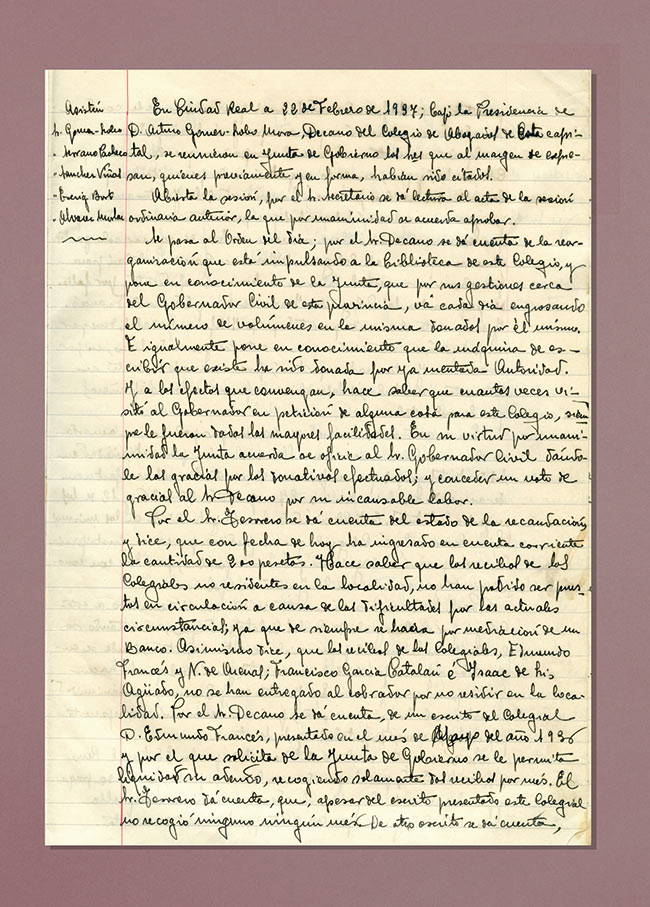 Asisten
Sr. Gomez-Lobo
- Serrano Pacheco
- Sanchez Viñas
-
- Alvarez
En Ciudad Real a 22 de Febrero de 1937; bajo la Presidencia de
D. Arturo Gomez-Lobo Mora, Decano del Colegio de Abogados de esta capi-
tal, se reunieron en Junta de Gobierno los Sres que al margen se expre-
san, quienes previamente y en forma, habian sido citados.
Abierta la sesión, por el Sr. Secretario se dá lectura al acta de la sesión
ordinaria anterior, la que por unanimidad se acuerda aprobar.
Se pasa al Orden del dia; por el Sr. Decano se dá cuenta de la reor-
ganización que está impulsando a la Biblioteca de este Colegio, y
pone en conocimiento de la Junta, que por sus gestiones cerca
del Gobernador Civil de esta provincia, vá cada dia engrosando
el número de volúmenes en la misma donados por él mismo.
E igualmente pone en conocimiento que la máquina de es-
cribir que existe ha sido donada por ya mentada Autoridad.
Y a los efectos que convengan, hace saber que cuantas veces vi-
sitó al Gobernador en petición de alguna cosa para este Colegio, siem
pre le fueron dadas las mayores facilidades. En su virtud por unani-
midad la Junta acuerda se oficie al Sr. Gobernador Civil dándo-
le las gracias por los donativos efectuados; y conceder un voto de
gracias al Sr. Decano por su incansable labor.
Por el Sr. Tesorero se dá cuenta del estado de la recaudación
y dice, que con fecha de hoy ha ingresado en cuenta corriente
la cantidad de 200 pesetas. Hace saber que los recibos de los
Colegiales no residentes en la localidad, no han podido ser pues-
tos en circulación a causa de las dificultades por las actuales
circunstancias; ya que de siempre se hacia por mediación de un
Banco. Asimismo dice, que los recibos de los Colegiales, Edmundo
Francés y N. de Arenal; Francisco Garcia Catalán é Ysaac de
Aguado, no se han entregado al cobrador por no residir en la loca-
lidad. Por el Sr. Decano se dá cuenta, de un escrito del Colegial
D. Edmundo Francés, presentado en el mes de Mayo del año 1936
y por el que solicita de la Junta de Gobierno se le permita
liquidar su adeudo, recogiendo solamente dos recibos por mes. El
Sr. Tesorero dá cuenta, que, apesar del escrito presentado este Colegial
no recogió ninguno ningún mes. De otro escrito se dá cuenta,